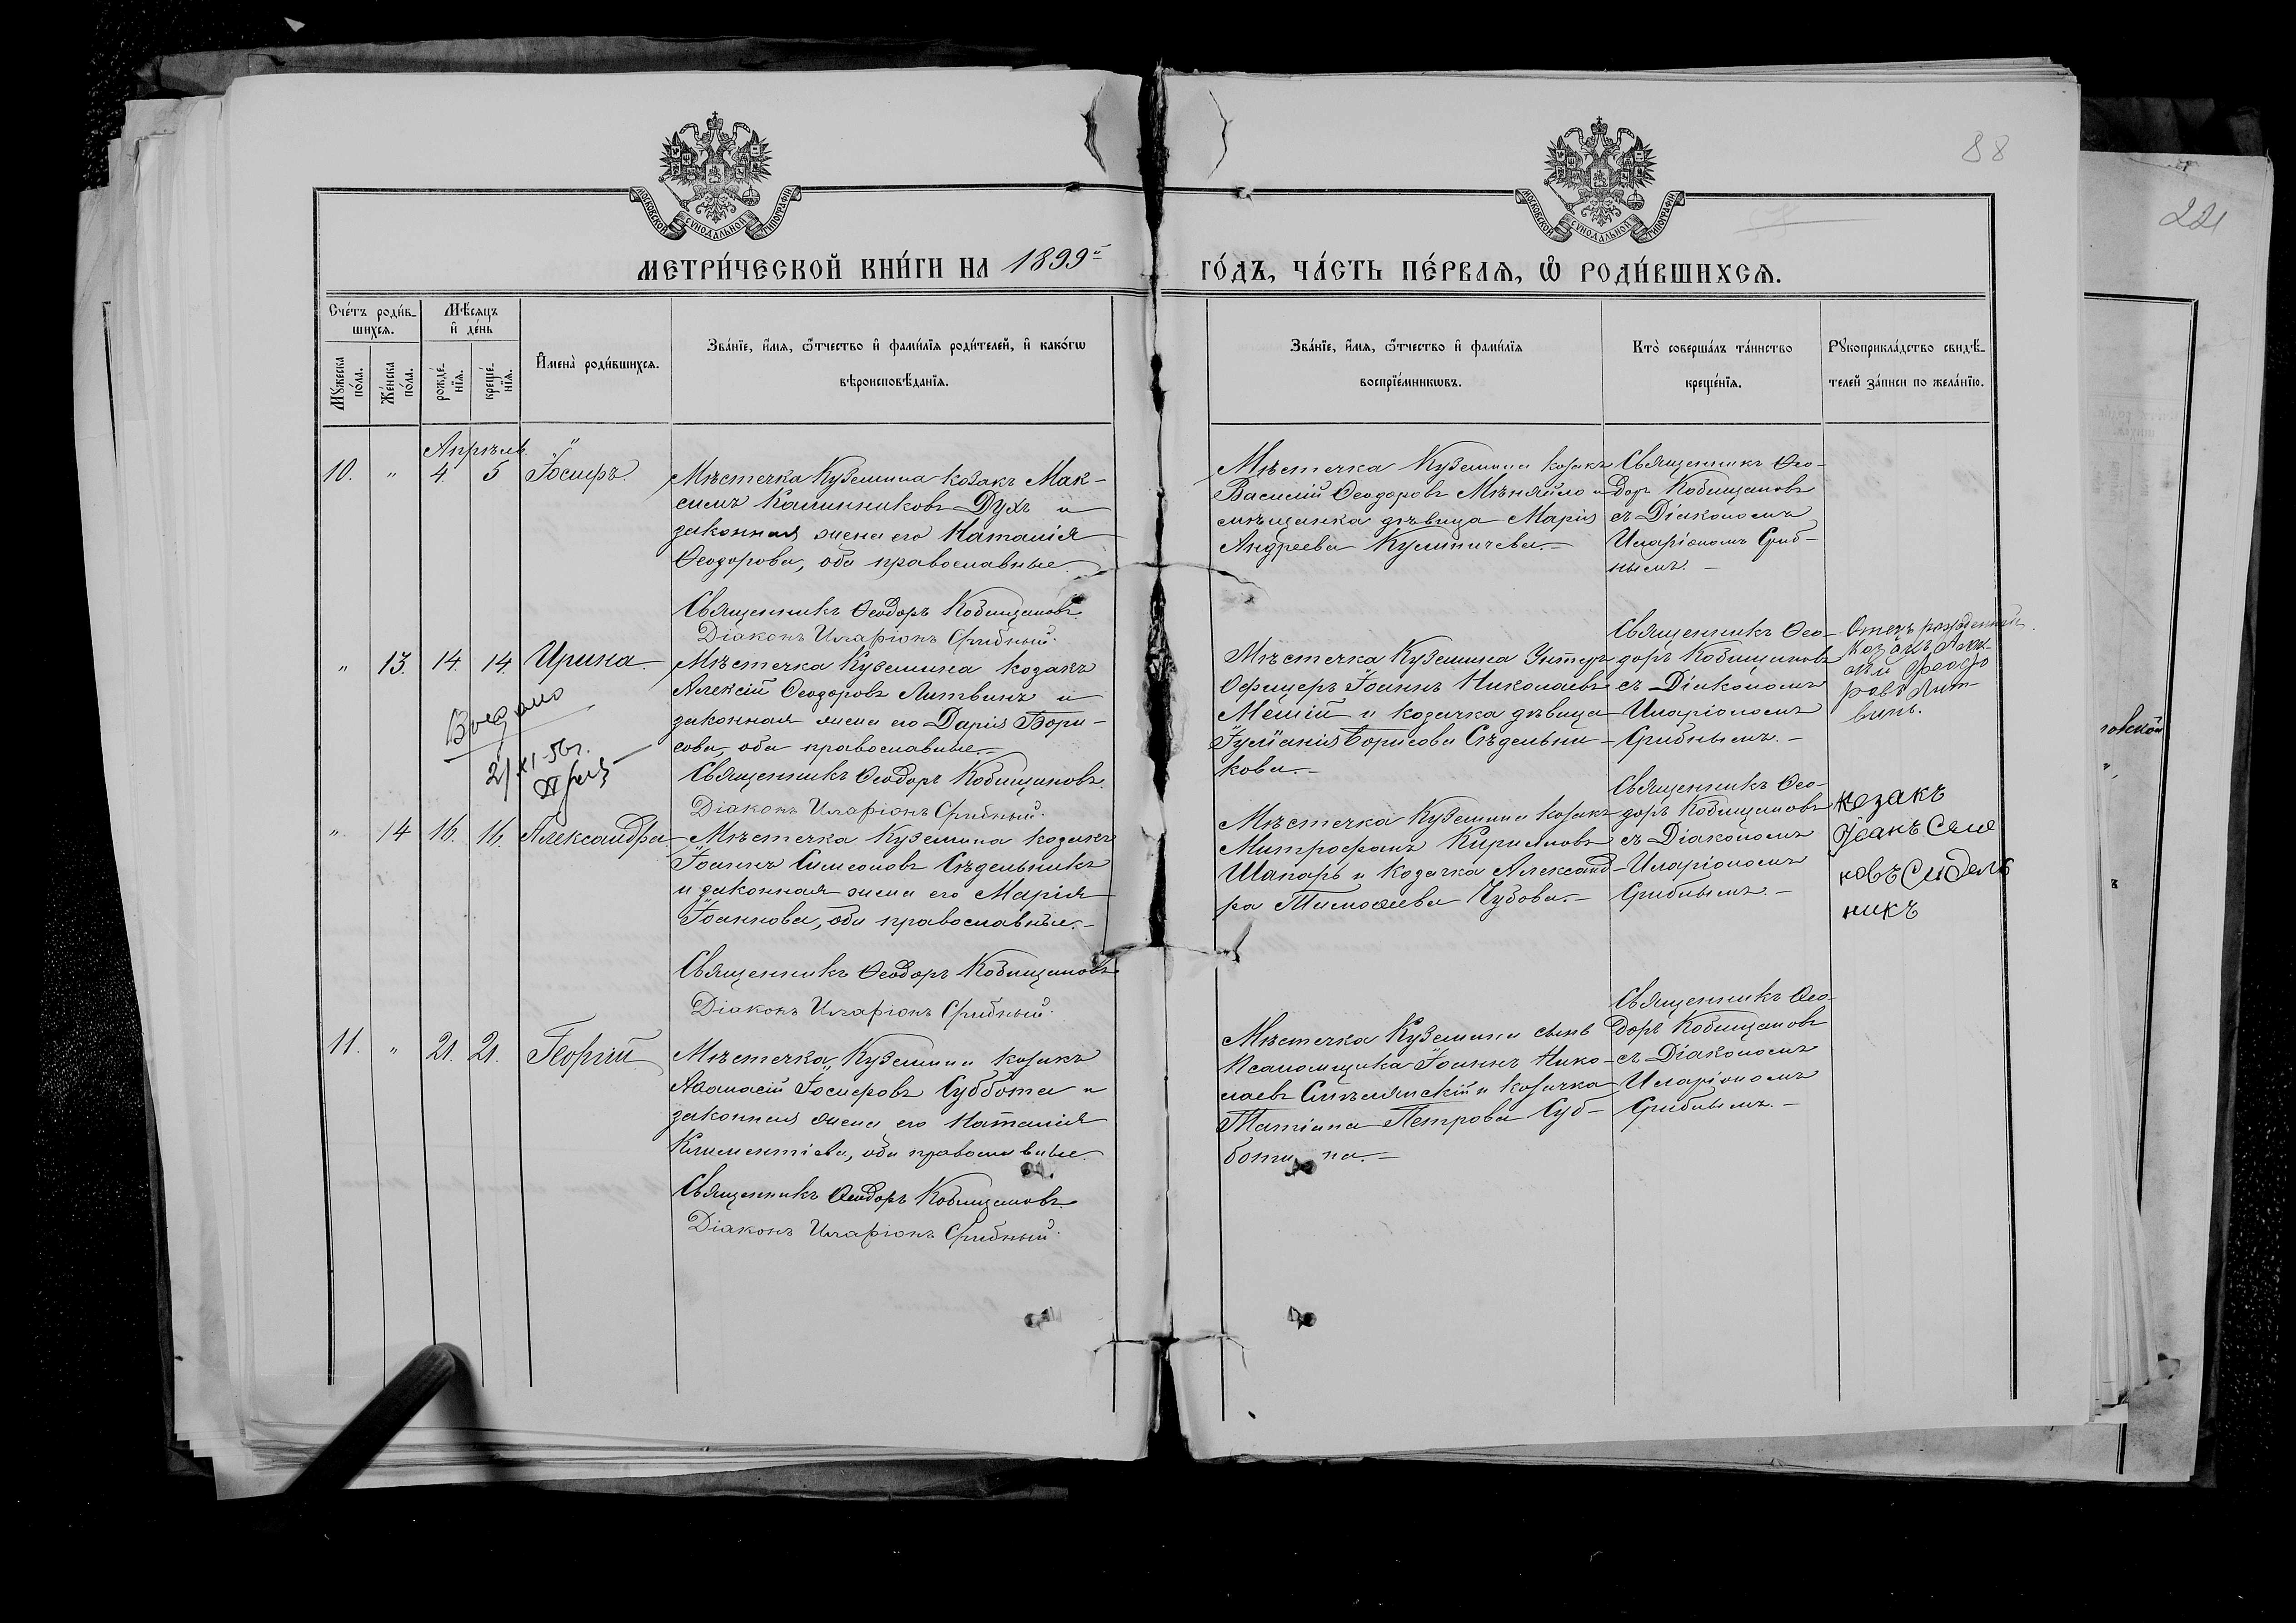 88
221
МОСКОВСКОЙ СѴНОДАЛЬНОЙ ТИПОГРАФІИ
МОСКОВСКОЙ СѴНОДАЛЬНОЙ ТИПОГРАФІИ
МЕТРИ́ЧЕСКОЙ КНИ́ГИ НА 1899й ГО́ДЪ, ЧА́СТЬ ПЕ́РВАѦ, Ѽ РОДИ́ВШИХСѦ.
Сче́тъ роди́в-
шихсѧ.
Мꙋ́жеска
по́ла.
Же́нска
по́ла.
Мѣ́сѧцъ
и҆ де́нь
рожде́-
нїѧ.
креще́-
нїѧ.
И҆мена̀ роди́вшихсѧ.
Зва́нїе, и҆́мѧ, ѻ҆́тчество и҆ фами́лїѧ роди́телей, и҆ како́гѡ
вѣроисповѣ́данїѧ.
Зва́нїе, и҆́мѧ, ѻ҆́тчество и҆ фами́лїѧ
воспрїе́мникѡвъ.
Кто̀ соверша́лъ та́инство
креще́нїѧ.
Рꙋкоприкла́дство свидѣ́-
телей за́писи по жела́нїю.
Апрѣль
10. " 4. 5 Іосифъ.
Мѣстечка Куземина козакъ Мак-
симъ Калинниковъ Духъ и
законная жена его Наталія
Ѳеодорова, оба православные.
Священникъ Ѳеодоръ Кобищановъ
Діаконъ Иларіонъ Срибный.
Мѣстечка Куземина козакъ
Василій Ѳеодоровъ Мѣняйло и
мѣщанка дѣвица Марія
Андреева Кулиничева.—
Священникъ Ѳео-
доръ Кобищановъ
съ Діакономъ
Иларіономъ Сриб-
нымъ.—
" 13. 14. 14. Ирина.
Мѣстечка Куземина козакъ
Алексій Ѳеодоровъ Литвинъ и
законная жена его Дарія Бори-
сова, оба православные.—
Священникъ Ѳеодоръ Кобищановъ.
Діаконъ Иларіонъ Срибный.
Мѣстечка Куземина Унтеръ
Офицеръ Іоаннъ Николаевъ
и козачка дѣвица
Іуліанія Борисова Сѣдельни-
кова.—
Священникъ Ѳео-
доръ Кобищановъ
съ Діакономъ
Иларіономъ
Срибнымъ.—
Отецъ рожденной
козакъ Алек-
сѣй Феодо
ровъ Лит-
винъ.
Видано
21/XI-56г.
" 14 16. 16. Александра
Мѣстечка Куземина козакъ
Іоаннъ Симеоновъ Сѣдельникъ
и законная жена его Марія
Іоаннова, оба православные.—
Священникъ Ѳеодоръ Кобищановъ
Діаконъ Иларіонъ Срибный.
Мѣстечка Куземина козакъ
Митрофанъ Кириловъ
Шапаръ и козачка Александ-
ра Тимоѳеева Чубова.—
Священникъ Ѳео-
доръ Кобищановъ
съ Діакономъ
Иларіономъ
Срибнымъ.—
козакъ
Іванъ Семе
новъ Сидель
никъ
11. " 21. 21. Георгій
Мѣстечка Куземина козакъ
Аѳанасій Іосифовъ Суббота и
законная жена его Наталія
Климентіева, оба православные.
Священникъ Ѳеодоръ Кобищановъ.
Діаконъ Иларіонъ Срибный.
Мѣстечка Куземина сынъ
Псаломщика Іоаннъ Нико-
лаевъ и козачка
Татіана Петрова Суб-
ботина.—
Священникъ Ѳео-
доръ Кобищановъ
съ Діакономъ
Иларіономъ
Срибнымъ.—